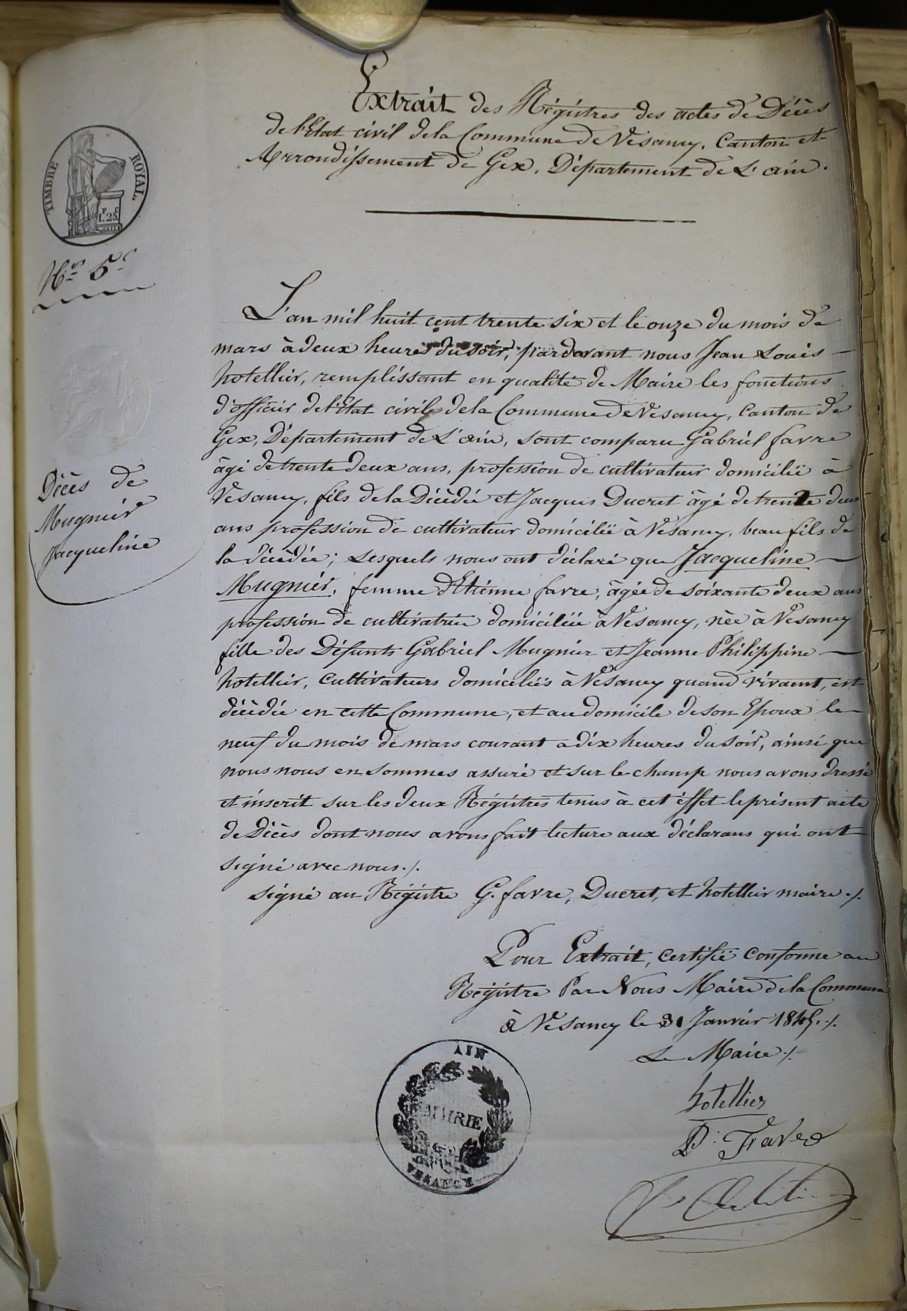 Extrait des Régistres des actes de Décès
de l'Etat civil de la Commune de Vésancy, Canton et
Arrondissement de Gex, Département de L'ain.
TIMBRE ROYAL
1.25
No 5e
L'an mil huit cent trente six et le onze du mois de
mars à deux heures du soir, pardevant nous Jean Louis
hotellier, remplissant en qualité de Maire les fonctions
d'officier de l'Etat civil de la Commune de Vésancy, canton de
Gex, Département de L'ain, sont comparu Gabriel favre
âgé de trente deux ans, profession de cultivateur domicilié à
Vésancy, fils de la Décédée et Jacques Ducret âgé de trente deux
ans profession de cultivateur domicilié à Vésancy, beau fils de
la décédée; Lesquels nous ont déclaré que Jacqueline
Mugnier, femme d'Etienne favre, âgée de soixante deux ans
profession de cultivatrice domiciliée à Vésancy, née à Vésancy
fille des Défunts Gabriel Mugnier et Jeanne Philippine
hotellier, cultivateurs domiciliés à Vésancy quand vivaient, est
décédée en cette Commune, et au domicile de son Epoux le
neuf du mois de mars courant à dix heures du soir, ainsi que
nous nous en sommes assuré et sur le champ nous avons dressé
et inscrit sur les deux Régistres tenus à cet éffet le présent acte
de Décès dont nous avons fait lecture aux déclarans qui ont
signé avec nous./.
Décès de
Mugnier
Jacqueline
signé au Régistre G. favre, Ducret, et hotellier maire./.
Pour Extrait, certifié conforme au
Régistre Par Nous Maire de la Commune
à Vésancy le 31 Janvier 1845./.
Le Maire./.
hotellier
AIN
MAIRIE
VESANCY